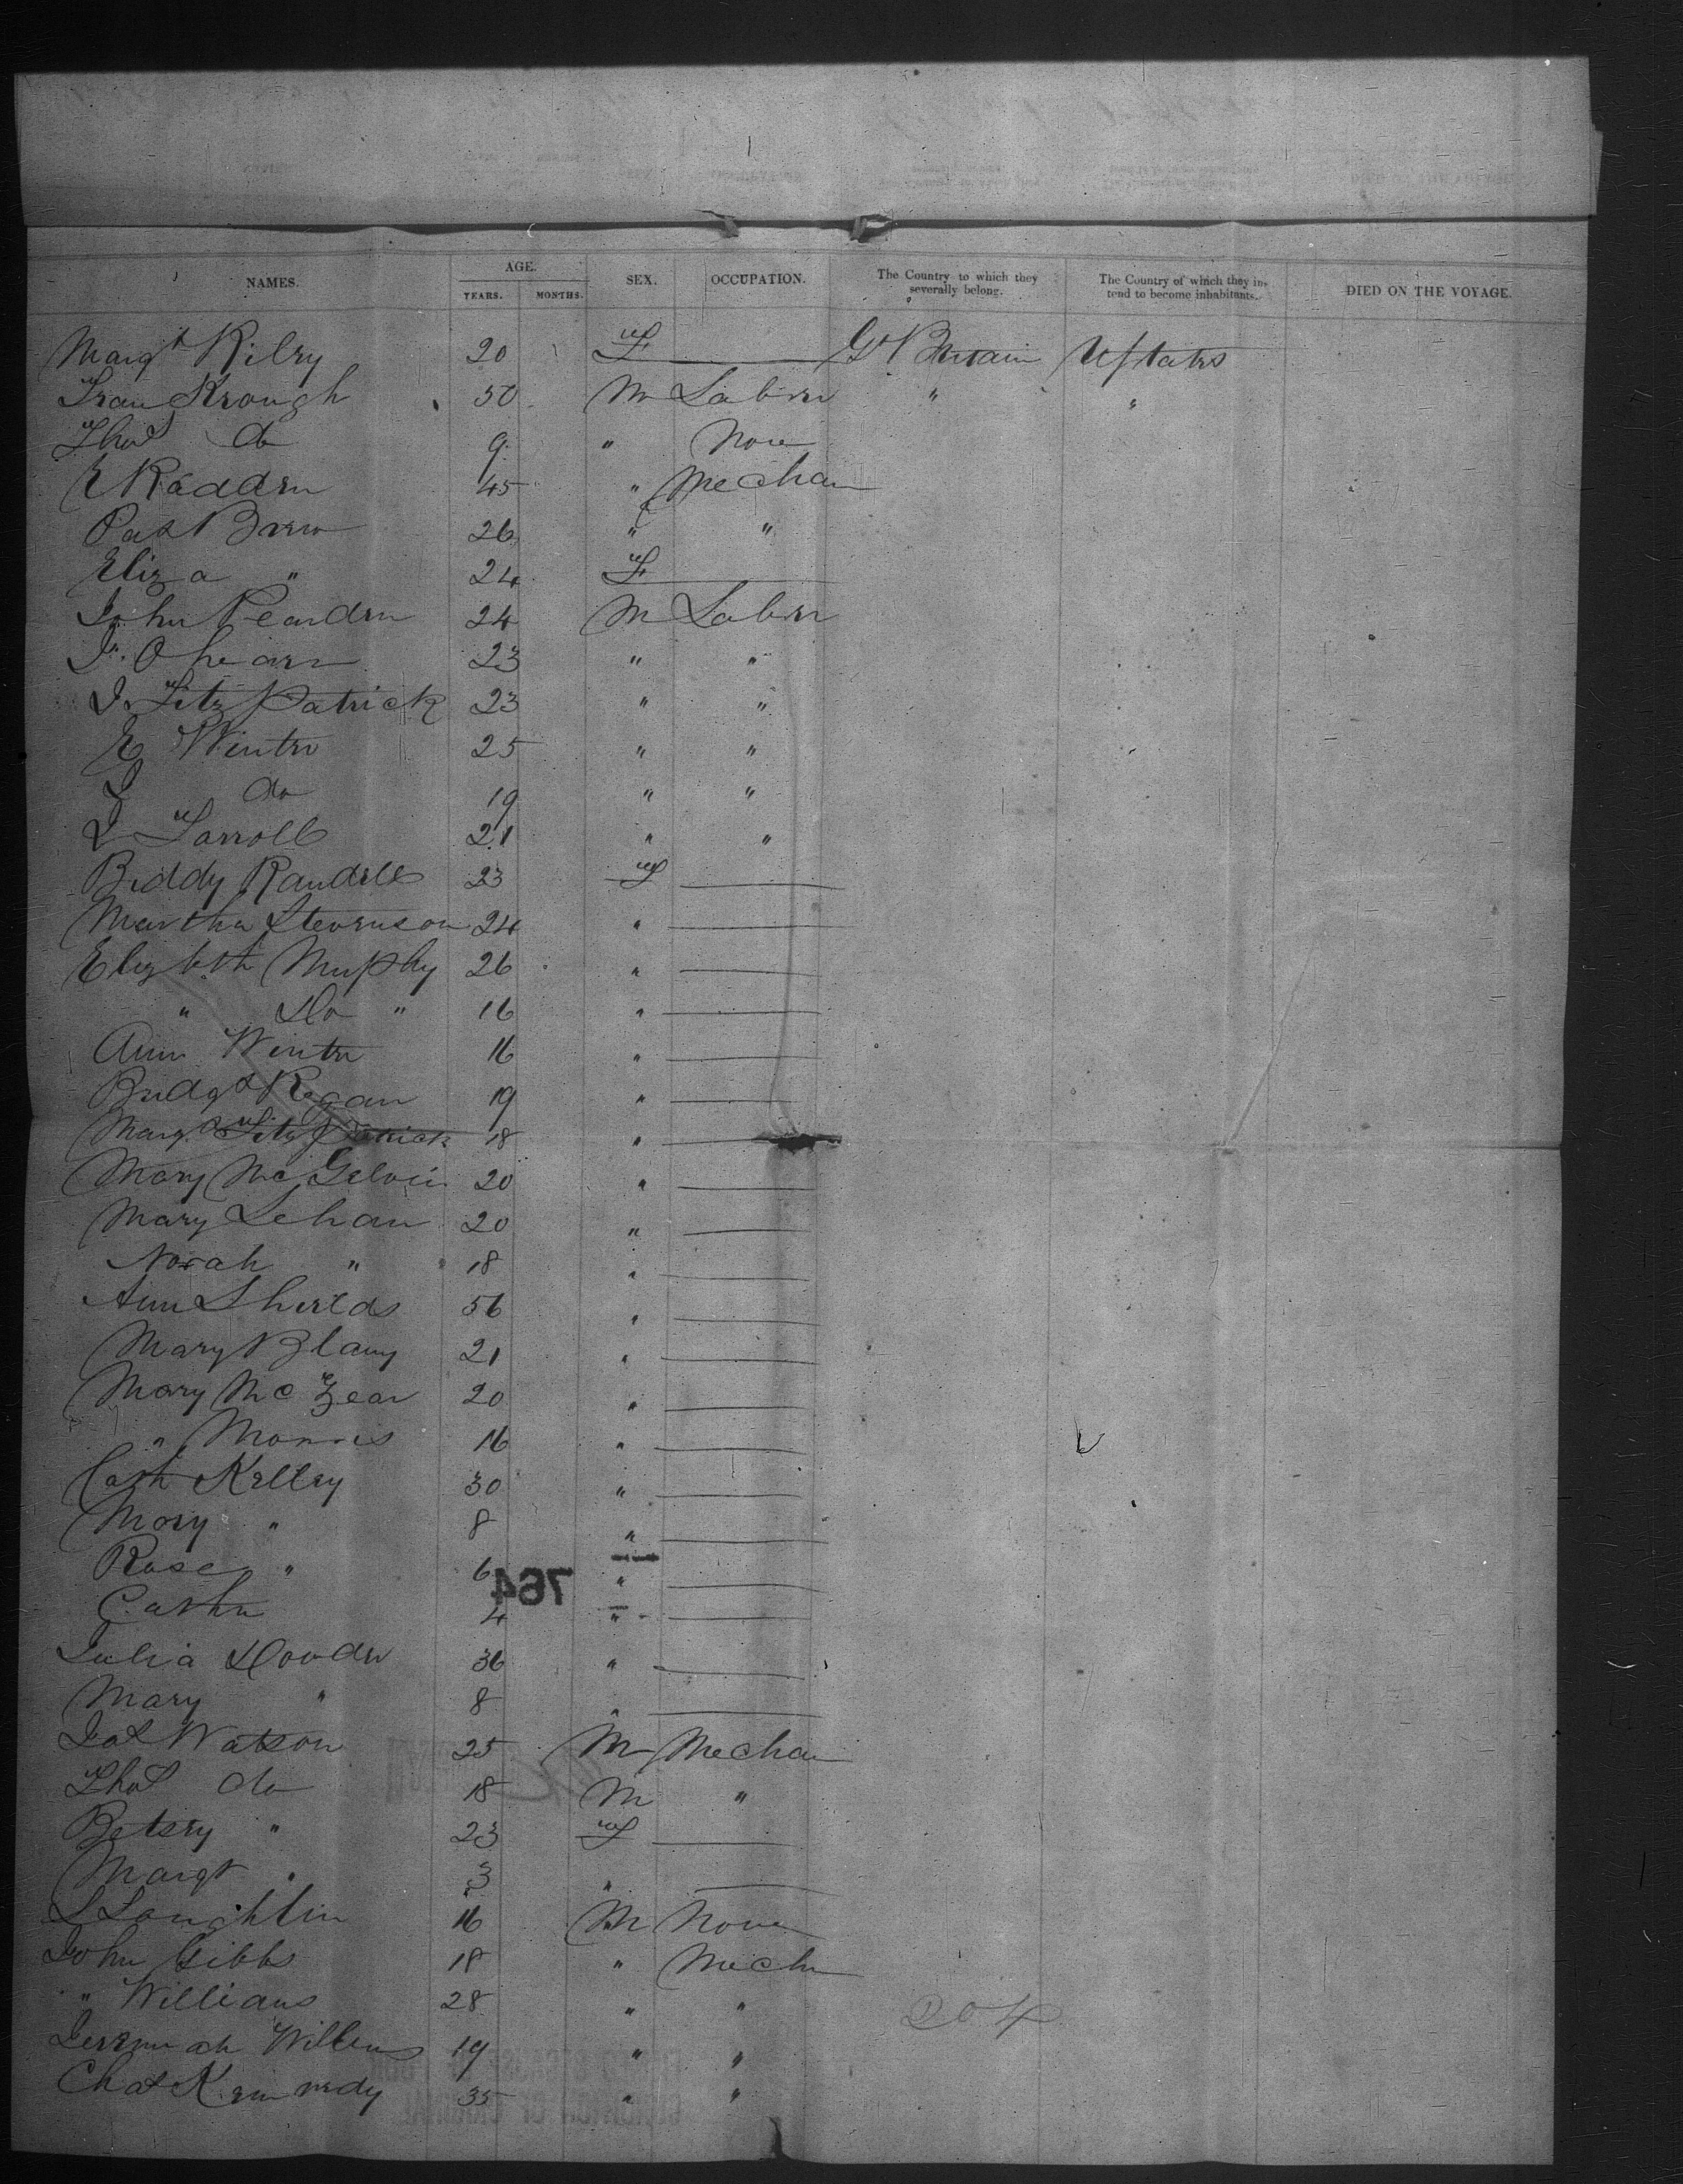 NAMES. AGE. YEARS. MONTHS. SEX. OCCUPATION. The Country to which they severally belong. The Country of which they intend to become inhabitants. DIED ON THE VOYAGE.
Margt Kilry 20 F Gt Britain UStates
Keough 50 M Labrer " "
Thos do 9 " None
E Radden 45 " Mechan
Pat Brew 26 " "
Eliza " 24 F
John Reardrn 24 M Labrer
J. Ohearn 23 " "
J. Fitz Patrick 23 " "
E Wintr 25 " "
J do 19 " "
J Farroll 21 " "
Biddy Randell 23 F
Martha Stevenson 24 "
Elizbeth Murphy 26 "
" Do " 16 "
Ann Wintr 16 "
Bridgt Regan 19 "
Margt Fitz Patrick 18 "
Mary McGelvin 20 "
Mary Lehan 20 "
Norah " 18 "
Ann Shields 56 "
Mary Blany 21 "
Mary Mc Gear 20 "
" Morris 16 "
Cath Kelley 30 "
Mary " 8 "
Rose " 6 "
764
Cathn 4 "
Julia 36 "
Mary " 8 "
Jas Watson 25 M Mechan
Thos do 18 M "
Betsey " 23 F
Margt " 3 "
L Loughlin 16 M None
John Gibbs 18 " Mechn
" Willians 28 " "
204
Jeremiah Willems 19 " "
Chas Kennedy 35 " "